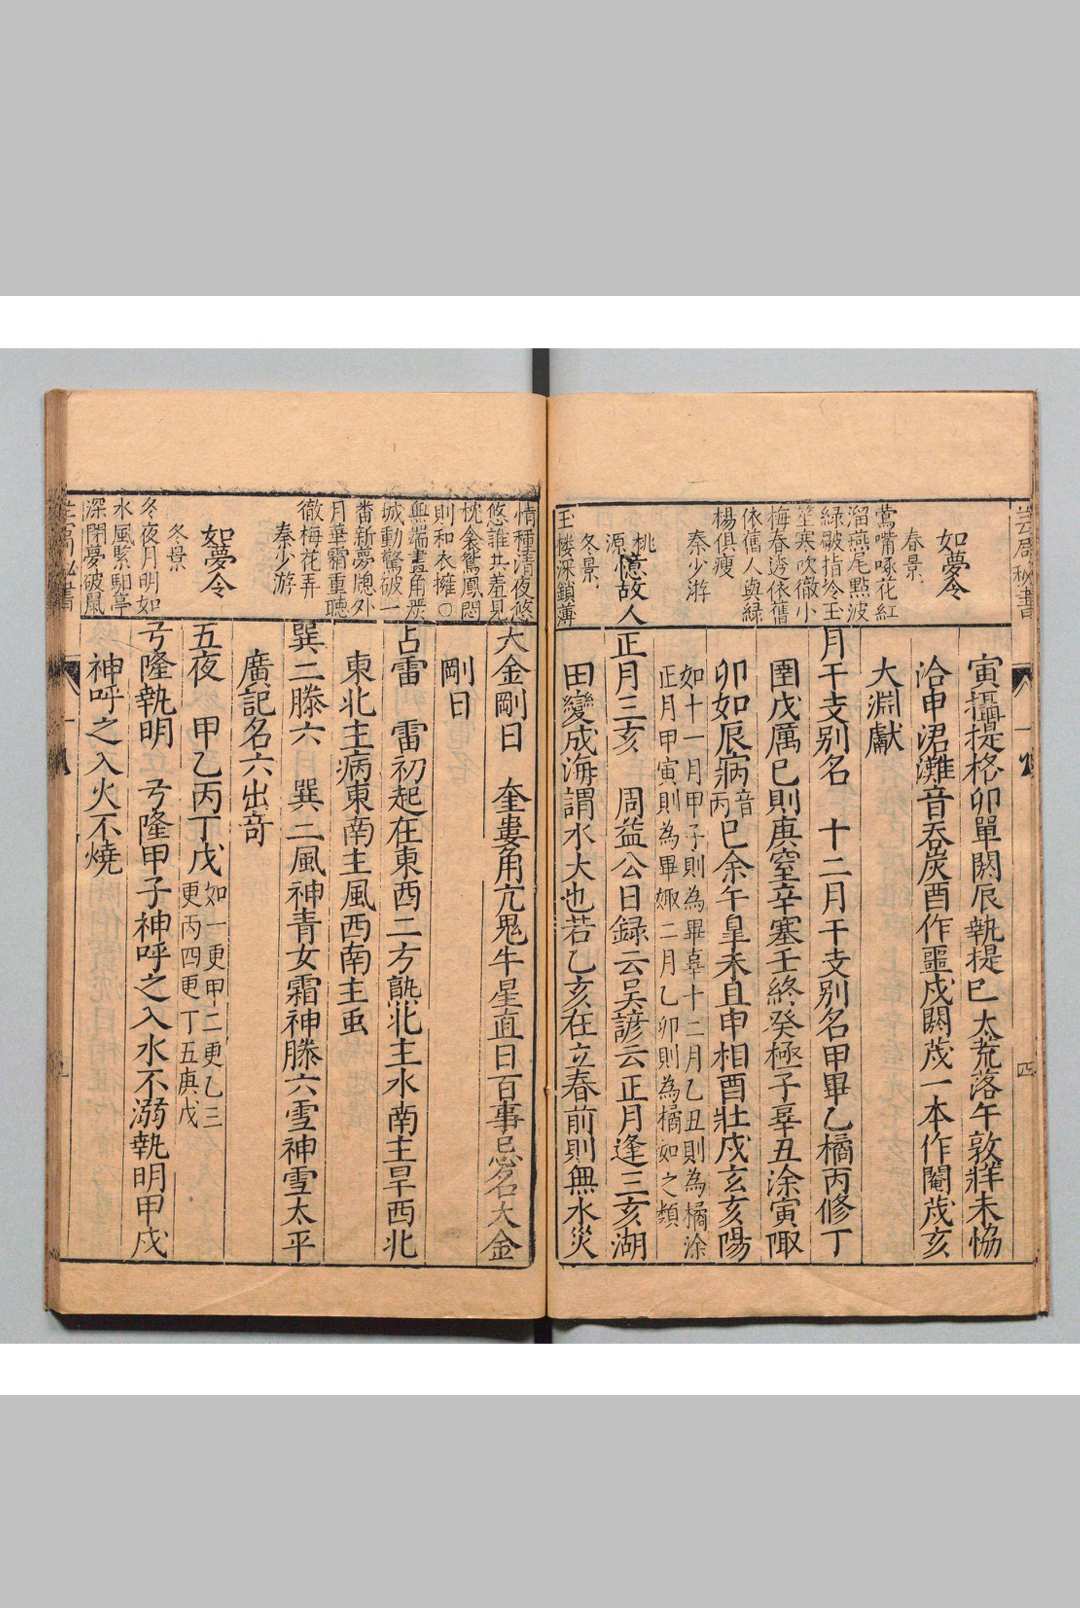 如夢令
春景
鶯嘴啄花紅
溜燕尾點波
綠皺指冷玉
笙寒吹徹小
梅春透依舊
依舊人與綠
楊俱瘦
秦少游
桃源
憶故人
冬景
玉楼深鎖薄
寅攝提格卯單閼辰執提巳大荒落午敦牂未協
洽申涒灘音吞炭酉作噩戌閼茂一本作閹茂亥
大淵獻
月干支别名 十二月干支别名甲畢乙橘丙修丁
圉戊厲巳則庚窒辛塞壬終癸極子辜丑涂寅陬
卯如辰寎音丙巳余午皐未且申相酉壯戌玄亥陽
如十一月甲子則為畢辜十二月乙丑則為橘涂
正月甲寅則為畢娵二月乙卯則為橘如之類
正月三亥 周益公日録云吴諺云正月逢三亥湖
田變成海謂水大也若乙亥在立春前則無水災
情種清夜悠
悠誰共羞見
枕衾鴛鳳悶
則和衣擁〇
無端畫角嚴
城動驚破一
番新夢窻外
月華霜重聽
徹梅花弄
秦少游
如夢令
冬景
冬夜月明如
水風緊馹亭
深閉夢破鼠
大金剛日 奎婁角亢鬼牛星直日百事忌名大金
剛日
占雷 雷初起在東西二方熟北主水南主旱西北
東北主病東南主風西南主虫
巽二滕六 巽二風神青女霜神滕六雪神雪太平
廣記名六出奇
五夜 甲乙丙丁戊如一更甲二更乙三
更丙四更丁五庚戊
弓隆執明 弓隆甲子神呼之入水不溺執明甲戌
神呼之入火不燒
四